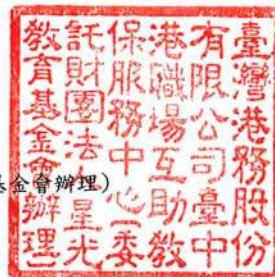 臺灣港務股份
有限公司臺中
港職場互助教
保服務中心(委
託財團法人星光
教育基金會辦理)
基金會辦理)